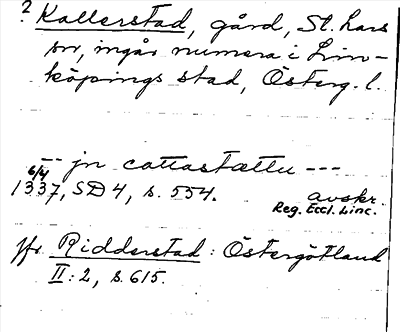 ? Kallerstad, gård, St. Lars
sn, ingår numera i Lin-
köpings stad, Österg. l.
--- jn cattastættu ---
6/4
1337, SD 4, s. 554.
avskr.
Reg. Eccl. Linc.
jfr Ridderstad: Östergötland
II: 2, s. 615.